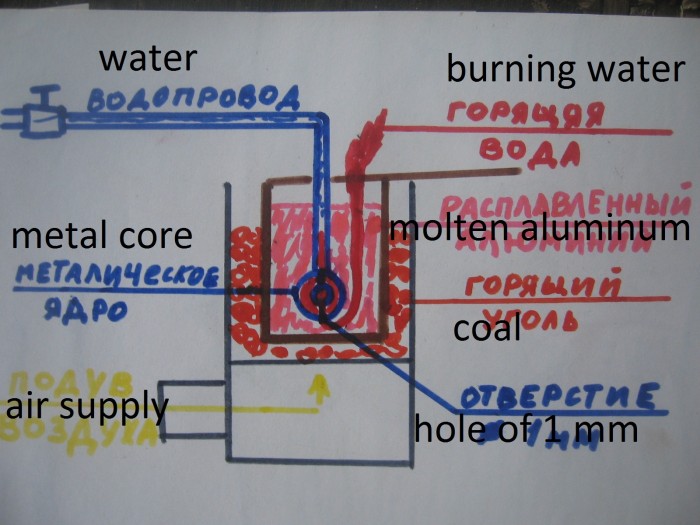 water
ВОДОПРОВОД
burning water
ГОРЯЩАЯ
ВОДА
РАСПЛАВЛЕННЫЙ
molten aluminum
АЛЮМИНИЙ
metal core
МЕТАЛИЧЕСКОЕ
ЯДРО
ГОРЯЩИЙ
coal
УГОЛЬ
ПОДУВ
air supply
ВОЗДУХА
ОТВЕРСТИЕ
hole of 1 mm
1 ММ